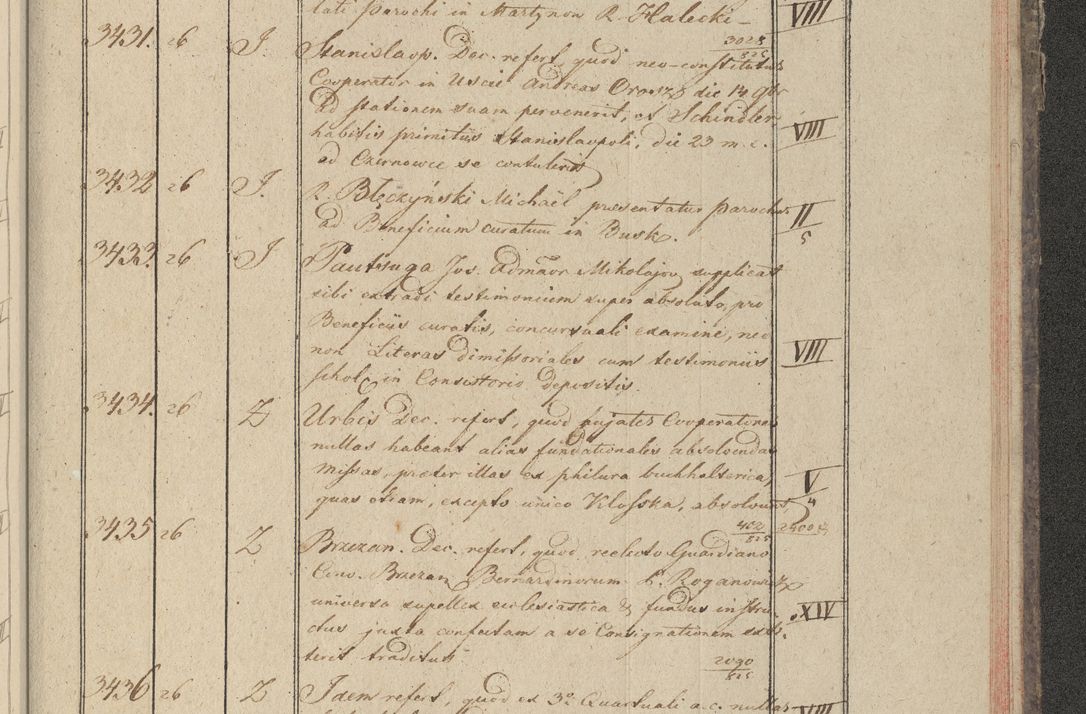 tati Parochi in Martynow R. Halecki – VIII
3025/825
3431. 26 J Stanislaop. Dec. refert, quod neo-constitutus
Cooperator in Uscie Andreas die 14 9br
ad stationem suam pervenerit, et Schindler
habitis primitiis Stanislaopoli, die 23 m. c. VIII
ad Czernowce se contulerit
3432 26 J. R. Błęczyński Michaël praesentatur Parochus II
ad Beneficium curatum in Busk. 5
3433. 26 J Pautsuga Jos. Admäor Mikolajov supplicat
sibi extradi testimonium super absoluto, pro
Beneficiis curatis, concursuali examine, nec
non Literas dimissoriales cum testimoniis VIII
schol. in Consistorio depositis.
3434. 26 Z Urbis Dec. refert, quod hujates Cooperatores
nullas habeant alias fundationales absolvendas
Missas, praeter illas ex philura buchhalterica, V
quas etiam, excepto unico Klosska, absolvunt, 4
402/825 2400
3435 26 Z Brzezan. Dec. refert, quod reelecto Guardiano
Conv. Brzezan Bernardinorum P. Roganowicz
universa supellex ecclesiastica & fundus instru- XIV
ctus juxta confectam a se Consignationem exti-
terit traditus
2090/825
3436 26 Z Idem refert, quod ex 3º Quartuali a. c. nullas VIII